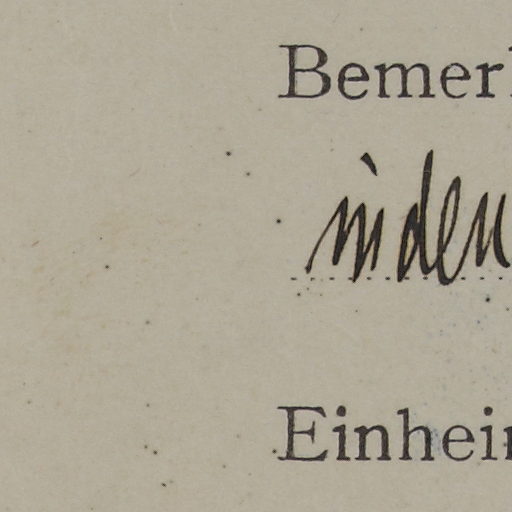 Bemer
in den
Einhei